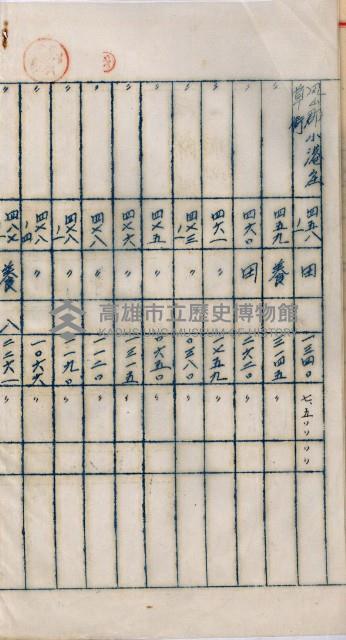 岡山郡小港庄
草衙
四五八
一
田
一三四〇
七、五〇〇〇〇
〃
四五九
養
三一四五
〃
〃
四六〇
田
二六二〇
〃
〃
四六一
〃
一七五九
〃
〃
四七三
一
〃
〇三八〇
〃
〃
四七五
〃
〇六五〇
〃
〃
四七六
〃
一三一五
〃
〃
四七八
〃
一一二〇
〃
〃
四七八
一
〃
一一九〇
〃
〃
四七八
四
〃
一〇六六
〃
〃
四八七
一
養
八二二六一
〃
高雄市立歷史博物館
KAOHSIUNG MUSEUM OF HISTORY